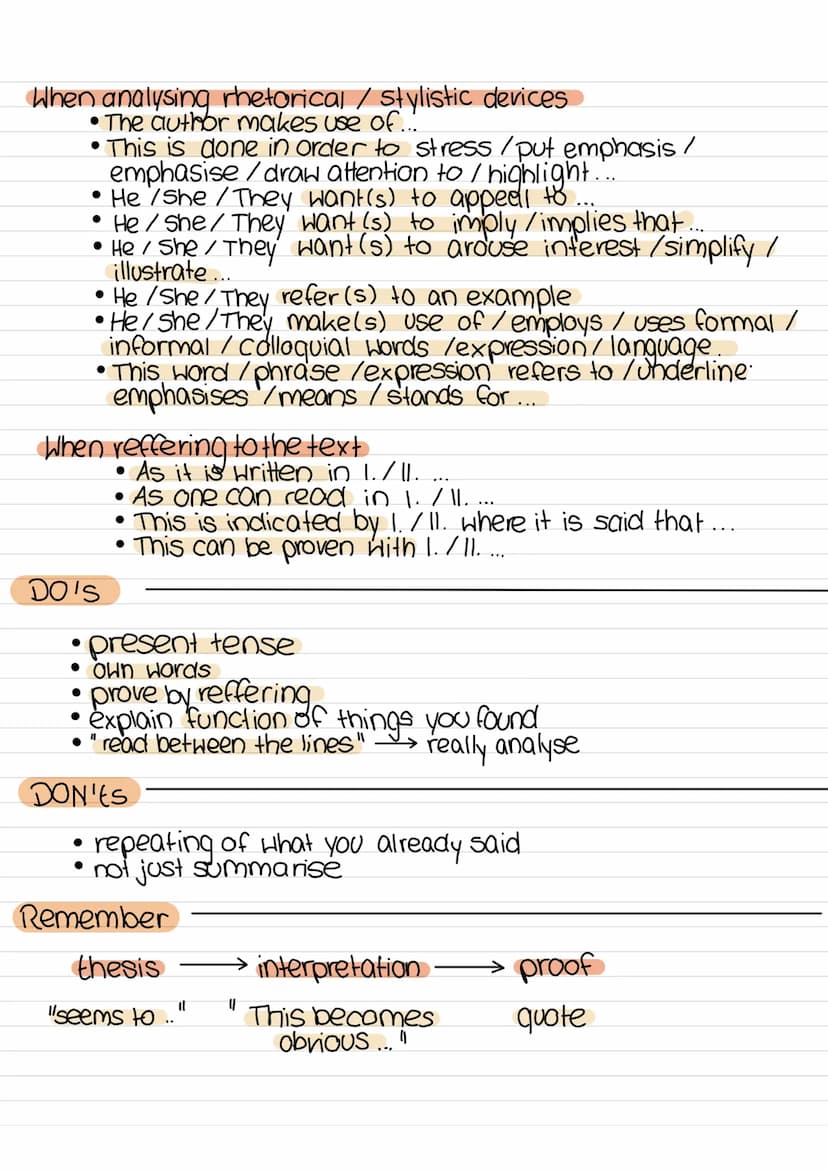 When analysing rhetorical / stylistic devices
• The author makes use of...
• This is done in order to stress / put emphasis /
emphasise / draw attention to / highlight...
• He / She / They want(s) to appeal to ...
• He / She / They want(s) to imply / implies that ...
• He / She / They want(s) to arouse interest / simplify /
illustrate ...
• He / She / They refer(s) to an example
• He / She / They make(s) use of / employs / uses formal /
informal / colloquial words / expression / language.
• This word / phrase / expression refers to / underline
emphasises / means / stands for ...
When reffering to the text
• As it is written in l. / ll. ...
• As one can read in l. / ll. ...
• This is indicated by l. / ll. where it is said that ...
• This can be proven with l. / ll. ...
DO's
• present tense
• own words
• prove by reffering
• explain function of things you found
• "read between the lines" → really analyse
DON'ts
• repeating of what you already said
• not just summarise
Remember
thesis → interpretation → proof
"seems to .." " This becomes quote
obvious ..."